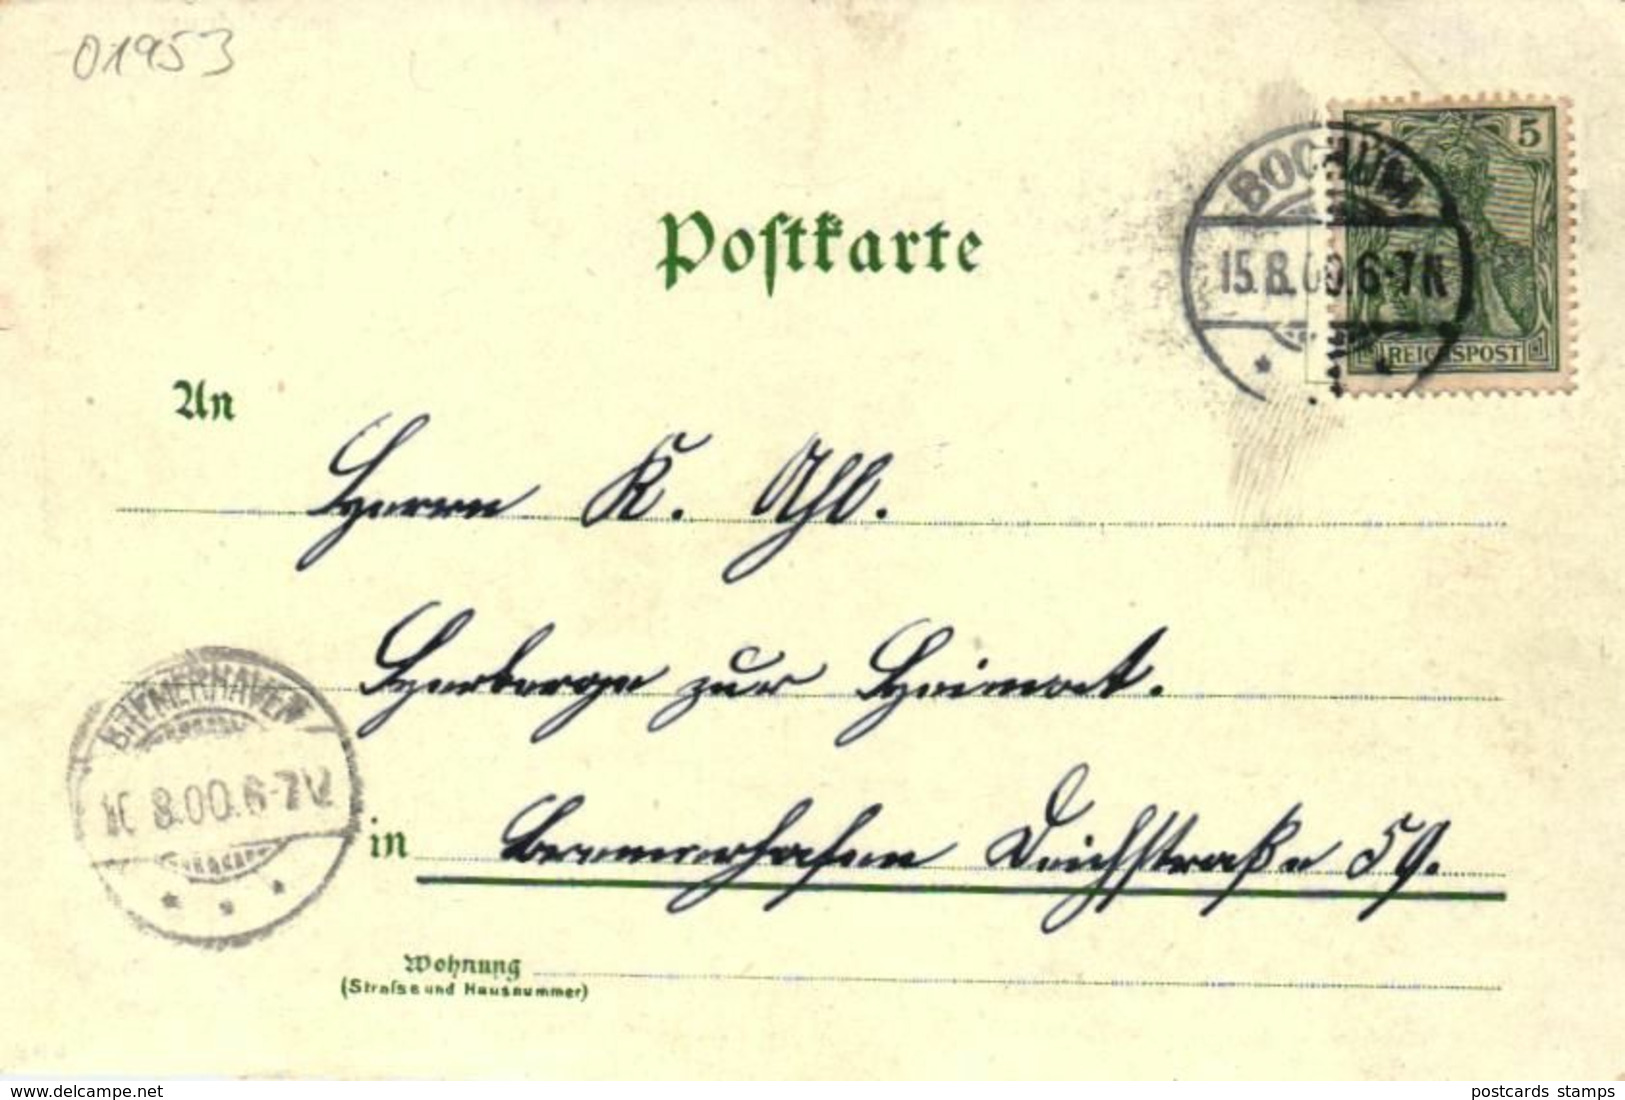 01953
5 5
BOCHUM
15.8.00.6-7N
REICHSPOST
Postkarte
An
Herrn K. Ahl.
Herberge zur Heimat.
BREMERHAVEN
8.00.6-7V
in Bremerhafen Deichstraße 59.
Wohnung
(Strafse und Hausnummer)
www.delcampe.net
postcards stamps